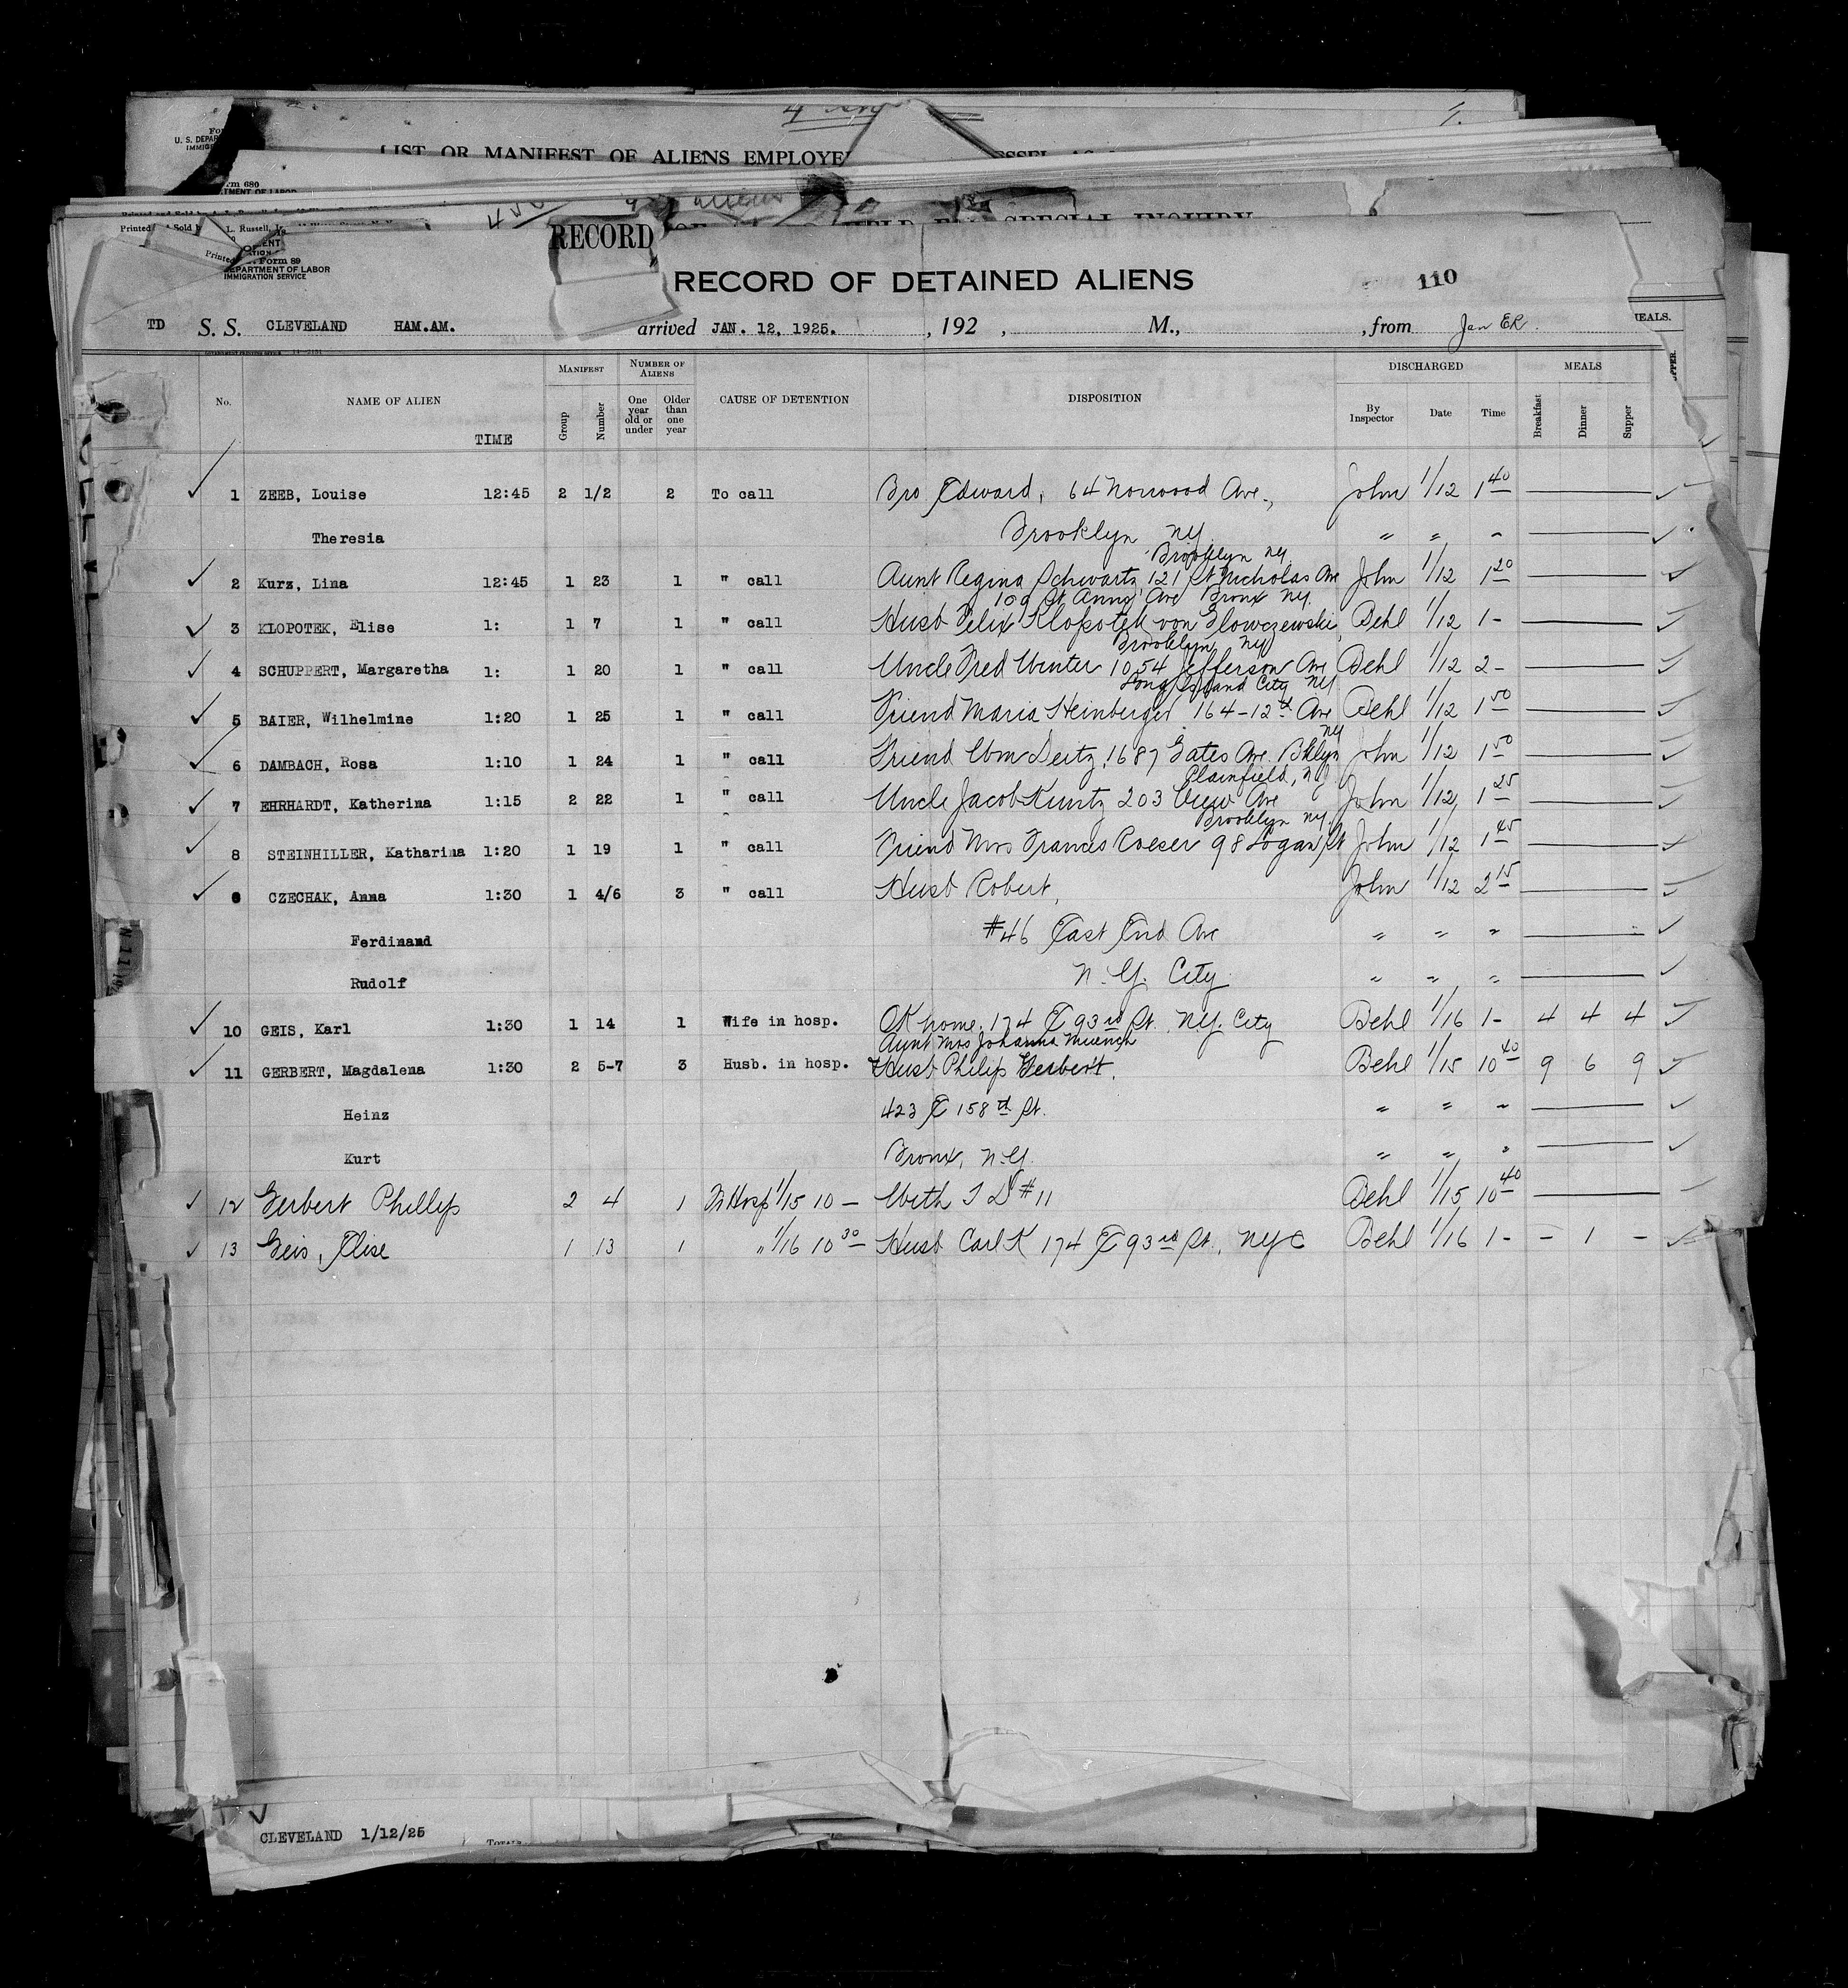 4
LIST OR MANIFEST OF ALIENS EMPLOYE
U. S. DEPAR
IMMIG
rm 680
TMENT OF LABOR
SPECIAL INQUIRY
Printed and Sold by L. Russell, Jr.
RECORD
Form 89
DEPARTMENT OF LABOR
IMMIGRATION SERVICE
RECORD OF DETAINED ALIENS
110
TD S. S. CLEVELAND HAM.AM. arrived JAN. 12, 1925. , 192 , M., , from Jan ER.
MEALS.
MANIFEST NUMBER OF ALIENS DISCHARGED MEALS
No. NAME OF ALIEN TIME Group Number One year old or under Older than one year CAUSE OF DETENTION DISPOSITION By Inspector Date Time Breakfast Dinner Supper
1 ZEEB, Louise 12:45 2 1/2 2 To call Bro Edward, 64 Norwood Ave., John 1/12 1 40
Theresia Brooklyn NY " " "
Brooklyn NY
2 Kurz, Lina 12:45 1 23 1 " call Aunt Regina Schwartz 121 St Nicholas Ave John 1/12 1 20
109 St Anns Ave Bronx NY.
3 KLOPOTEK, Elise 1: 1 7 1 " call Husb Felix Klopotek von Glowczewski, Behl 1/12 1-
Brooklyn NY
4 SCHUPPERT, Margaretha 1: 1 20 1 " call Uncle Fred Winter 1054 Jefferson Ave Behl 1/12 2-
Long Island City NY
5 BAIER, Wilhelmine 1:20 1 25 1 " call Friend Maria Steinberger 164-12th Ave Behl 1/12 1 50
NY
6 DAMBACH, Rosa 1:10 1 24 1 " call Friend Wm Seitz, 1687 Gates Ave. Bklyn John 1/12 1 50
Plainfield, N.J.
7 EHRHARDT, Katherina 1:15 2 22 1 " call Uncle Jacob Kuntz 203 View Ave John 1/12 1 25
Brooklyn NY.
8 STEINHILLER, Katharina 1:20 1 19 1 " call Friend Mrs Frances Roeser 98 Logan St John 1/12 1 45
CZECHAK, Anna 1:30 1 4/6 3 " call Husb Robert, John 1/12 2 15
Ferdinand #46 East End Ave " " "
Rudolf N.Y. City " " "
10 GEIS, Karl 1:30 1 14 1 Wife in hosp. OK home, 174 E 93rd St. N.Y. City Behl 1/16 1- 4 4 4
Aunt Mrs Johanna Muench
11 GERBERT, Magdalena 1:30 2 5-7 3 Husb. in hosp. Husb Philip Gerbert. Behl 1/15 10 40 9 6 9
Heinz 423 E 158th St. " " "
Kurt Bronx, N.Y. " " "
12 Gerbert Phillip 2 4 1 Hosp 1/15 10 - With T D #11 Behl 1/15 10 40
13 Geis, Elise 1 13 1 " 1/16 10 30 Husb Carl K 174 E 93rd St, NYC Behl 1/16 1- - 1 -
CLEVELAND 1/12/25 TOTAL